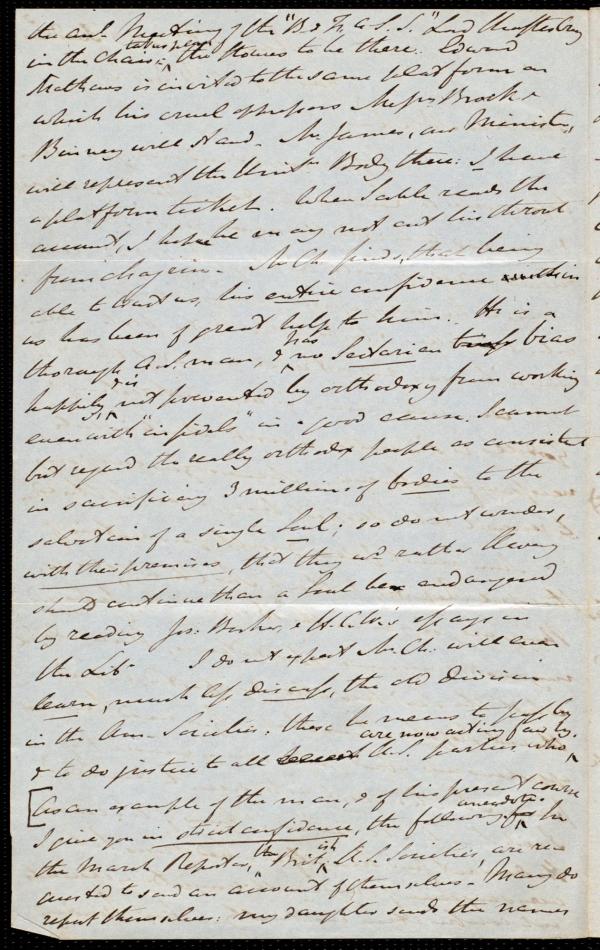 the ann. Meeting of the "B & F. A. S. S." Lord Shaftesbury
in the Chair; & the Stowes to be there. Edward
Mathews is invited to the same platform on
which his cruel oppressors Messrs Brock &
Binney will stand. Mr James, our Minister,
will represent the Unitn Body there: I have
a platform ticket. When Sable reads the
account, I hope he may not cut his throat
from chagrin. Mr Ch. finds, that being
able to trust us, his entire confidence within
us has been of great help to him. He is a
thorough A.S. man, & has no Sectarian bias
happily, & is not prevented by orthodoxy from working
even with "infidels" in a good cause. I cannot
but regard the really orthodox people as consistent
in sacrificing 3 millions of bodies to the
salvation of a single Soul; so do not wonder,
with their premises, that they wd rather Slavery
should continue than a Soul be endangered
by reading Jos: Barker, & H. C. W's essays in
the Libr I do not expect Mr Ch. will ever
learn, much less discuss, the old division
in the Am. Societies; these he means to pass by
& to do justice to all A.S. parties who are now acting fairly.
[As an example of the man, & of his present course
I give you in strict confidence, the following anecdote. In
the March Reporter, the British A.S. Societies, are re-
quested to send an account of themselves. Many do
report themselves: my daughter sends the names